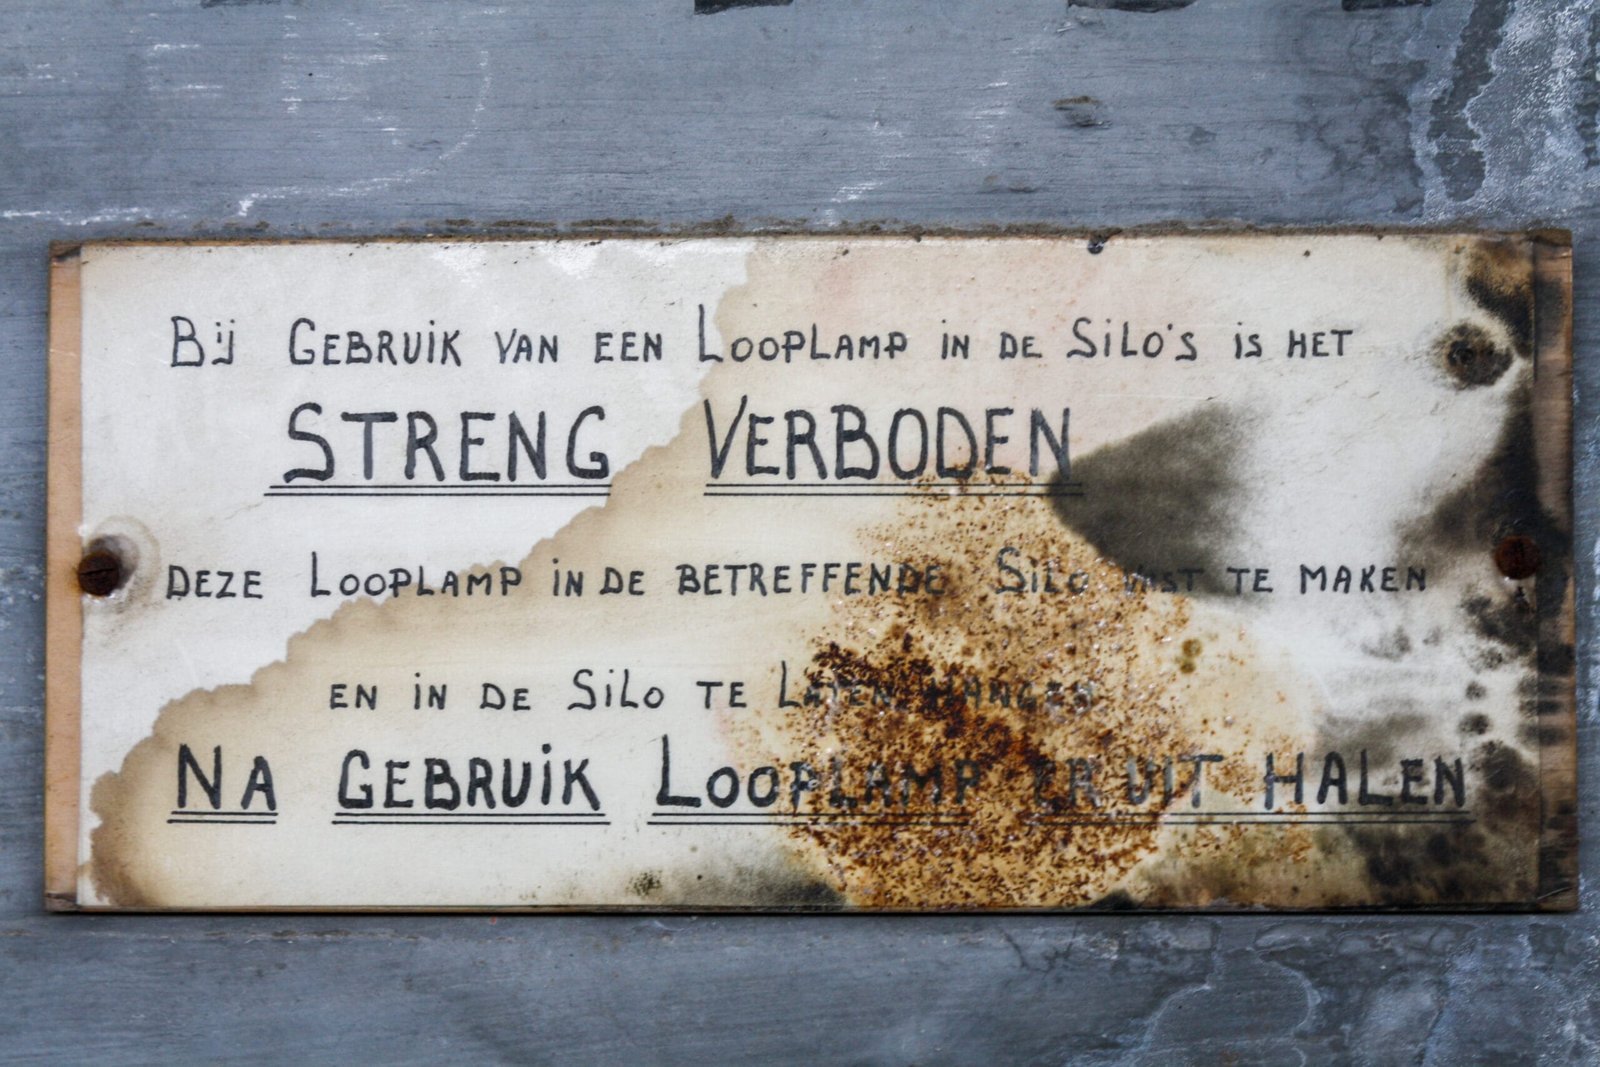 Bij GEBRUiK VAN EEN LOOPLAMP iN DE SiLO'S iS HET
STRENG VERBODEN
DEZE LOOPLAMP iN DE BETREFFENDE SiLO VAST TE MAKEN
EN iN DE SiLO TE LATEN HANGEN
NA GEBRUiK LOOPLAMP ER UIT HALEN